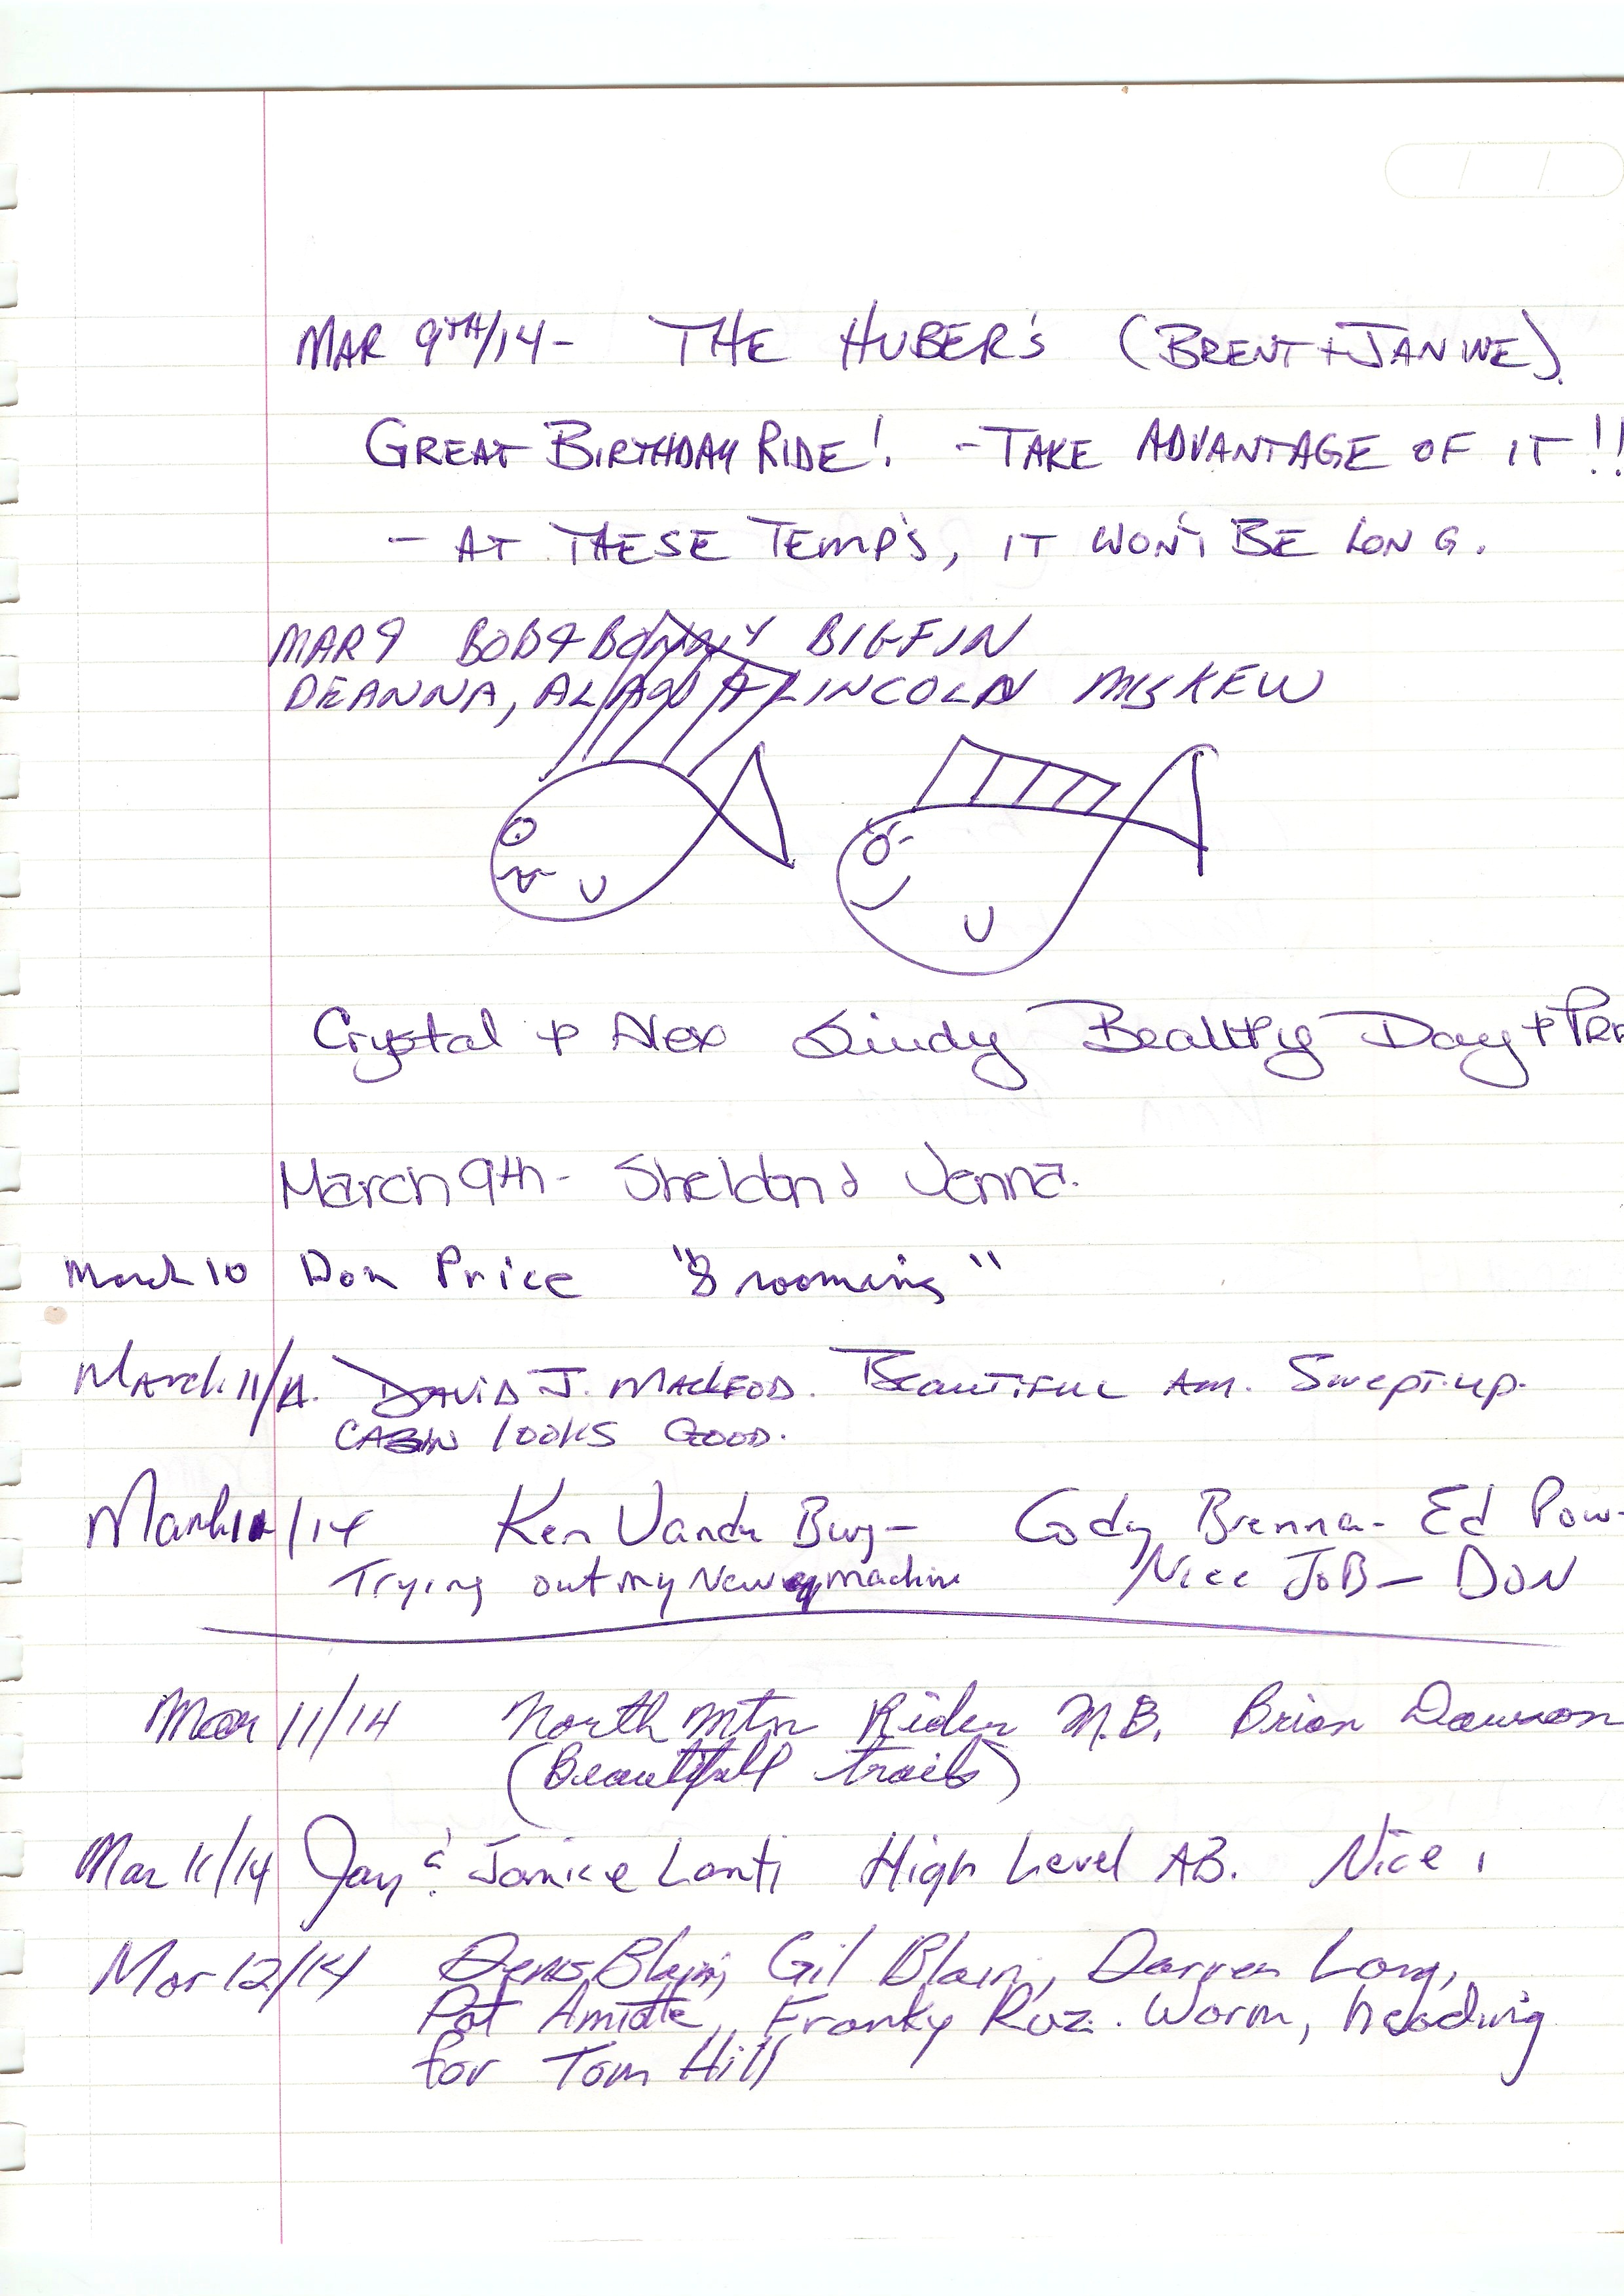 MAR 9TH/14 - THE HUBER'S (BRENT + JANINE).
GREAT BIRTHDAY RIDE! - TAKE ADVANTAGE OF IT!!
- AT THESE TEMP'S, IT WON'T BE LONG.
MAR 9 BOB & BONNY BIGFIN
DEANNA, ALAN & LINCOLN MISKEW
Crystal + Alex Lindy Day +
March 9th - Sheldon & Jenna.
March 10 Don Price "Grooming"
March 11/14. DAVID J. MACLEOD. BEAUTIFUL Am. Swept-up.
CABIN LOOKS GOOD.
March /14 Ken - Cody Brenna - Ed
Trying out my New machine Nice JOB - DON
Mar 11/14 North Mtn Rider Brian Dawson
(Beautifull trails)
Mar 11/14 Jay & Janice Lanti High Level AB. Nice !
Mar 12/14 Blain, Gil Blain, Darren Long,
Pat Franky Roz. Warm, heading
for Tom Hill